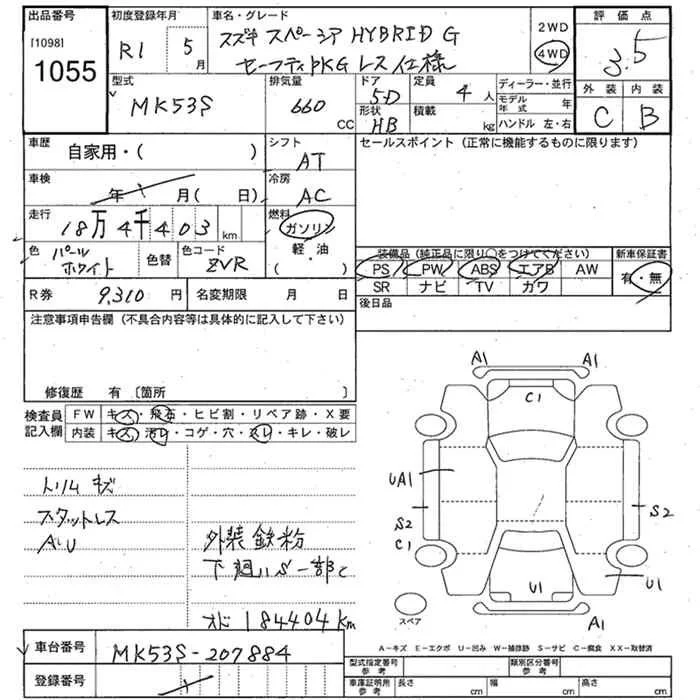 出品番号
[1098]
1055
初度登録年月
R1 5月
車名・グレード
スズキ スペーシア HYBRID G
セーフティPKG レス仕様
2WD
4WD
評価点
3.5
外装 内装
C B
型式
MK53S
排気量
660 CC
ドア
5D
形状
HB
定員
4人
積載
kg
ディーラー・並行
モデル年式 年
ハンドル 左・右
車歴
自家用・( )
シフト
AT
セールスポイント(正常に機能するものに限ります)
車検
年 月( 日)
冷房
AC
走行
18万4千403 km
燃料
ガソリン
軽・油
( )
色
パールホワイト
色替
色コード
ZVR
装備品(純正品に限り○をつけてください) 新車保証書
PS PW ABS エアB AW 有・無
SR ナビ TV カワ
R券 9,310円 名変期限 月 日
後日品
注意事項申告欄(不具合内容等は具体的に記入して下さい)
修復歴 有 〔箇所 〕
検査員記入欄
FW キズ・飛石・ヒビ割・リペア跡・X要
内装 キズ・汚レ・コゲ・穴・スレ・キレ・破レ
トリム キズ
スタットレス
A U
外装 鉄粉
下廻りS一部C
オド 184404km
A1 A1
C1
UA1
S2 S2
C1
U1 U1
A1
スペア
A-キズ E-エクボ U-凹み W-補修跡 S-サビ C-腐食 XX-取替済
車台番号 MK53S-207884
登録番号
型式指定番号 参考
類別区分番号 参考
車庫証明用 参考
長さ cm 幅 cm 高さ cm